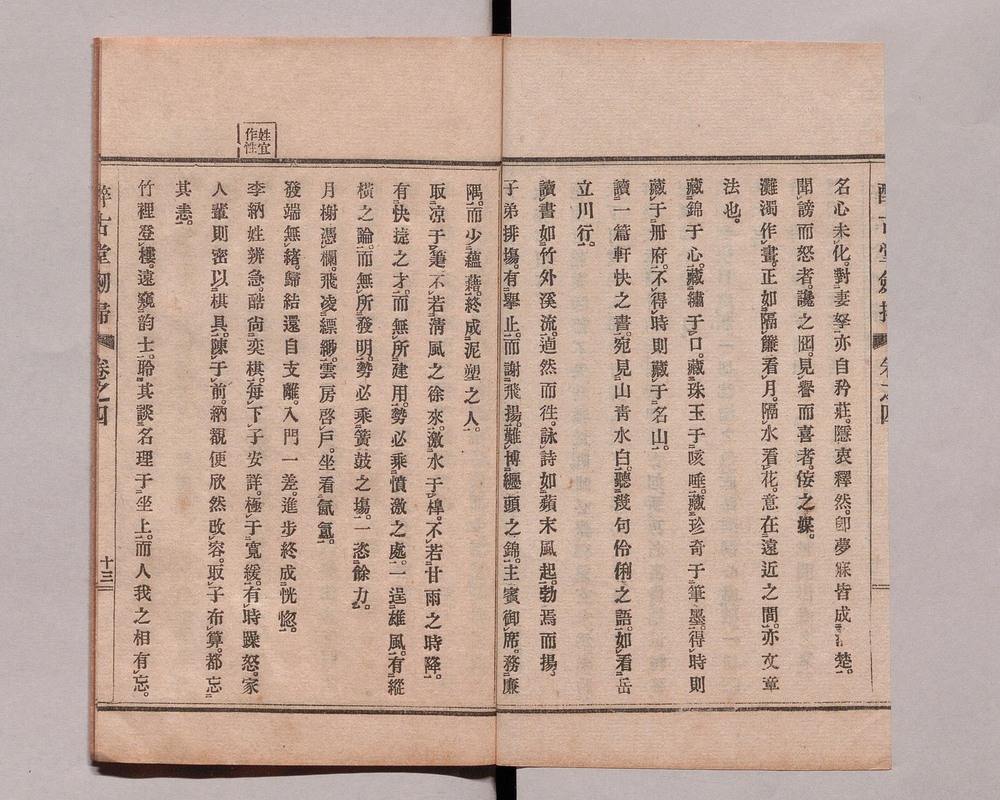 名心未化。對妻孥亦自矜莊。隱衷釋然。卽夢寐皆成淸楚。
聞謗而怒者。讒之囮。見譽而喜者。佞之媒。
灘濁作畫。正如隔簾看月。隔水看花。意在遠近之間。亦文章
法也。
藏錦于心。藏繡于口。藏珠玉于咳唾。藏珍奇于筆墨。得時則
藏于册府。不得時則藏于名山。
讀一篇軒快之書。宛見山靑水白。聽幾句伶俐之語。如看岳
立川行。
讀書如竹外溪流。洒然而往。詠詩如蘋末風起。勃焉而揚。
子弟排場。有擧止而謝飛揚。難博纏頭之錦。主賓御席。務廉
隅。而少蘊藉。終成泥塑之人。
取凉于箑。不若淸風之徐來。激水于槹。不若甘雨之時降。
有快捷之才。而無所建用。勢必乘憤激之處。一逞雄風。有縱
橫之論。而無所發明。勢必乘簧鼓之場。一恣餘力。
月榭憑欄。飛凌縹緲。雲房啓戶。坐看氤氳。
發端無緖。歸結還自支離。入門一差。進步終成恍惚。
李納姓辨急。酷尙奕棋。每下子安詳。極于寬緩。有時躁怒。家
人輩則密以棋具。陳于前。納覩便欣然改容。取子布算。都忘
其恚。
竹裡登樓。遠窺韵士。聆其談名理于坐上。而人我之相有忘。
姓宜
作性
醉古堂劒掃
卷之四
十三